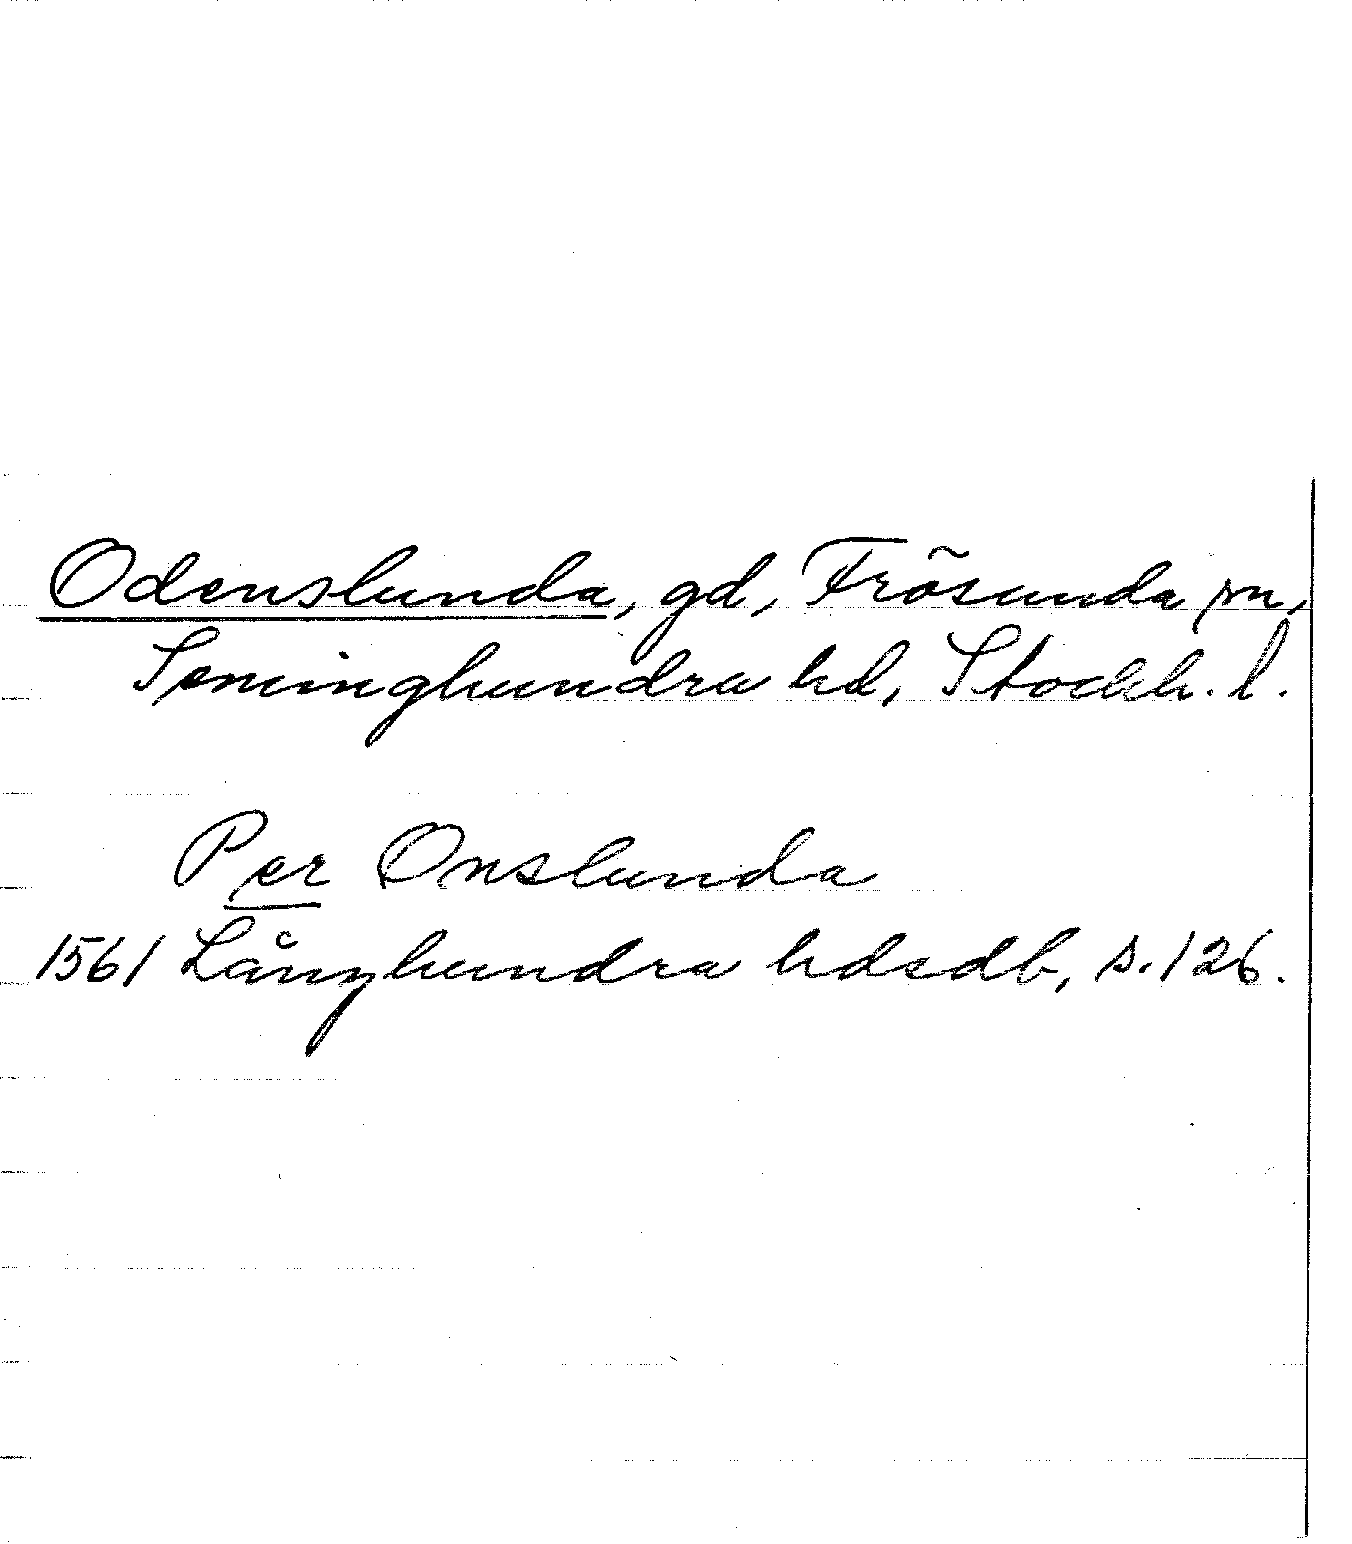 Odenslunda, gd, Frösunda sn,
Seminghundra hd, Stockh. l.
Per Onslunda
1561 Långhundra hdsdb, s. 126.